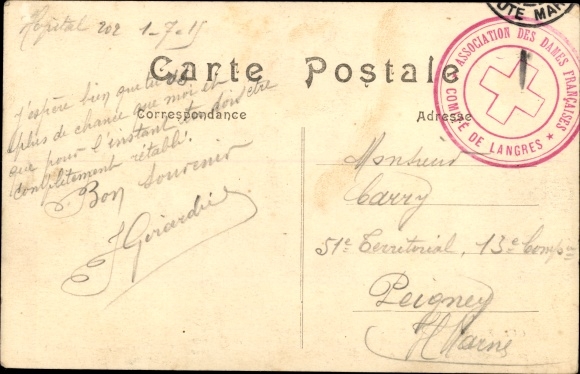 Hopital 202 1-7-15
Carte Postale
Correspondance
Adresse
J'espère bien que tu as
plus de chance que moi et
que pour l'instant tu dois être
complètement rétabli.
Bon souvenir
J Girardin
Monsieur
Carry
51e Territorial, 13e Compie
Peigney
Hte Marne
ASSOCIATION DES DAMES FRANÇAISES
COMITÉ DE LANGRES
UTE MAR